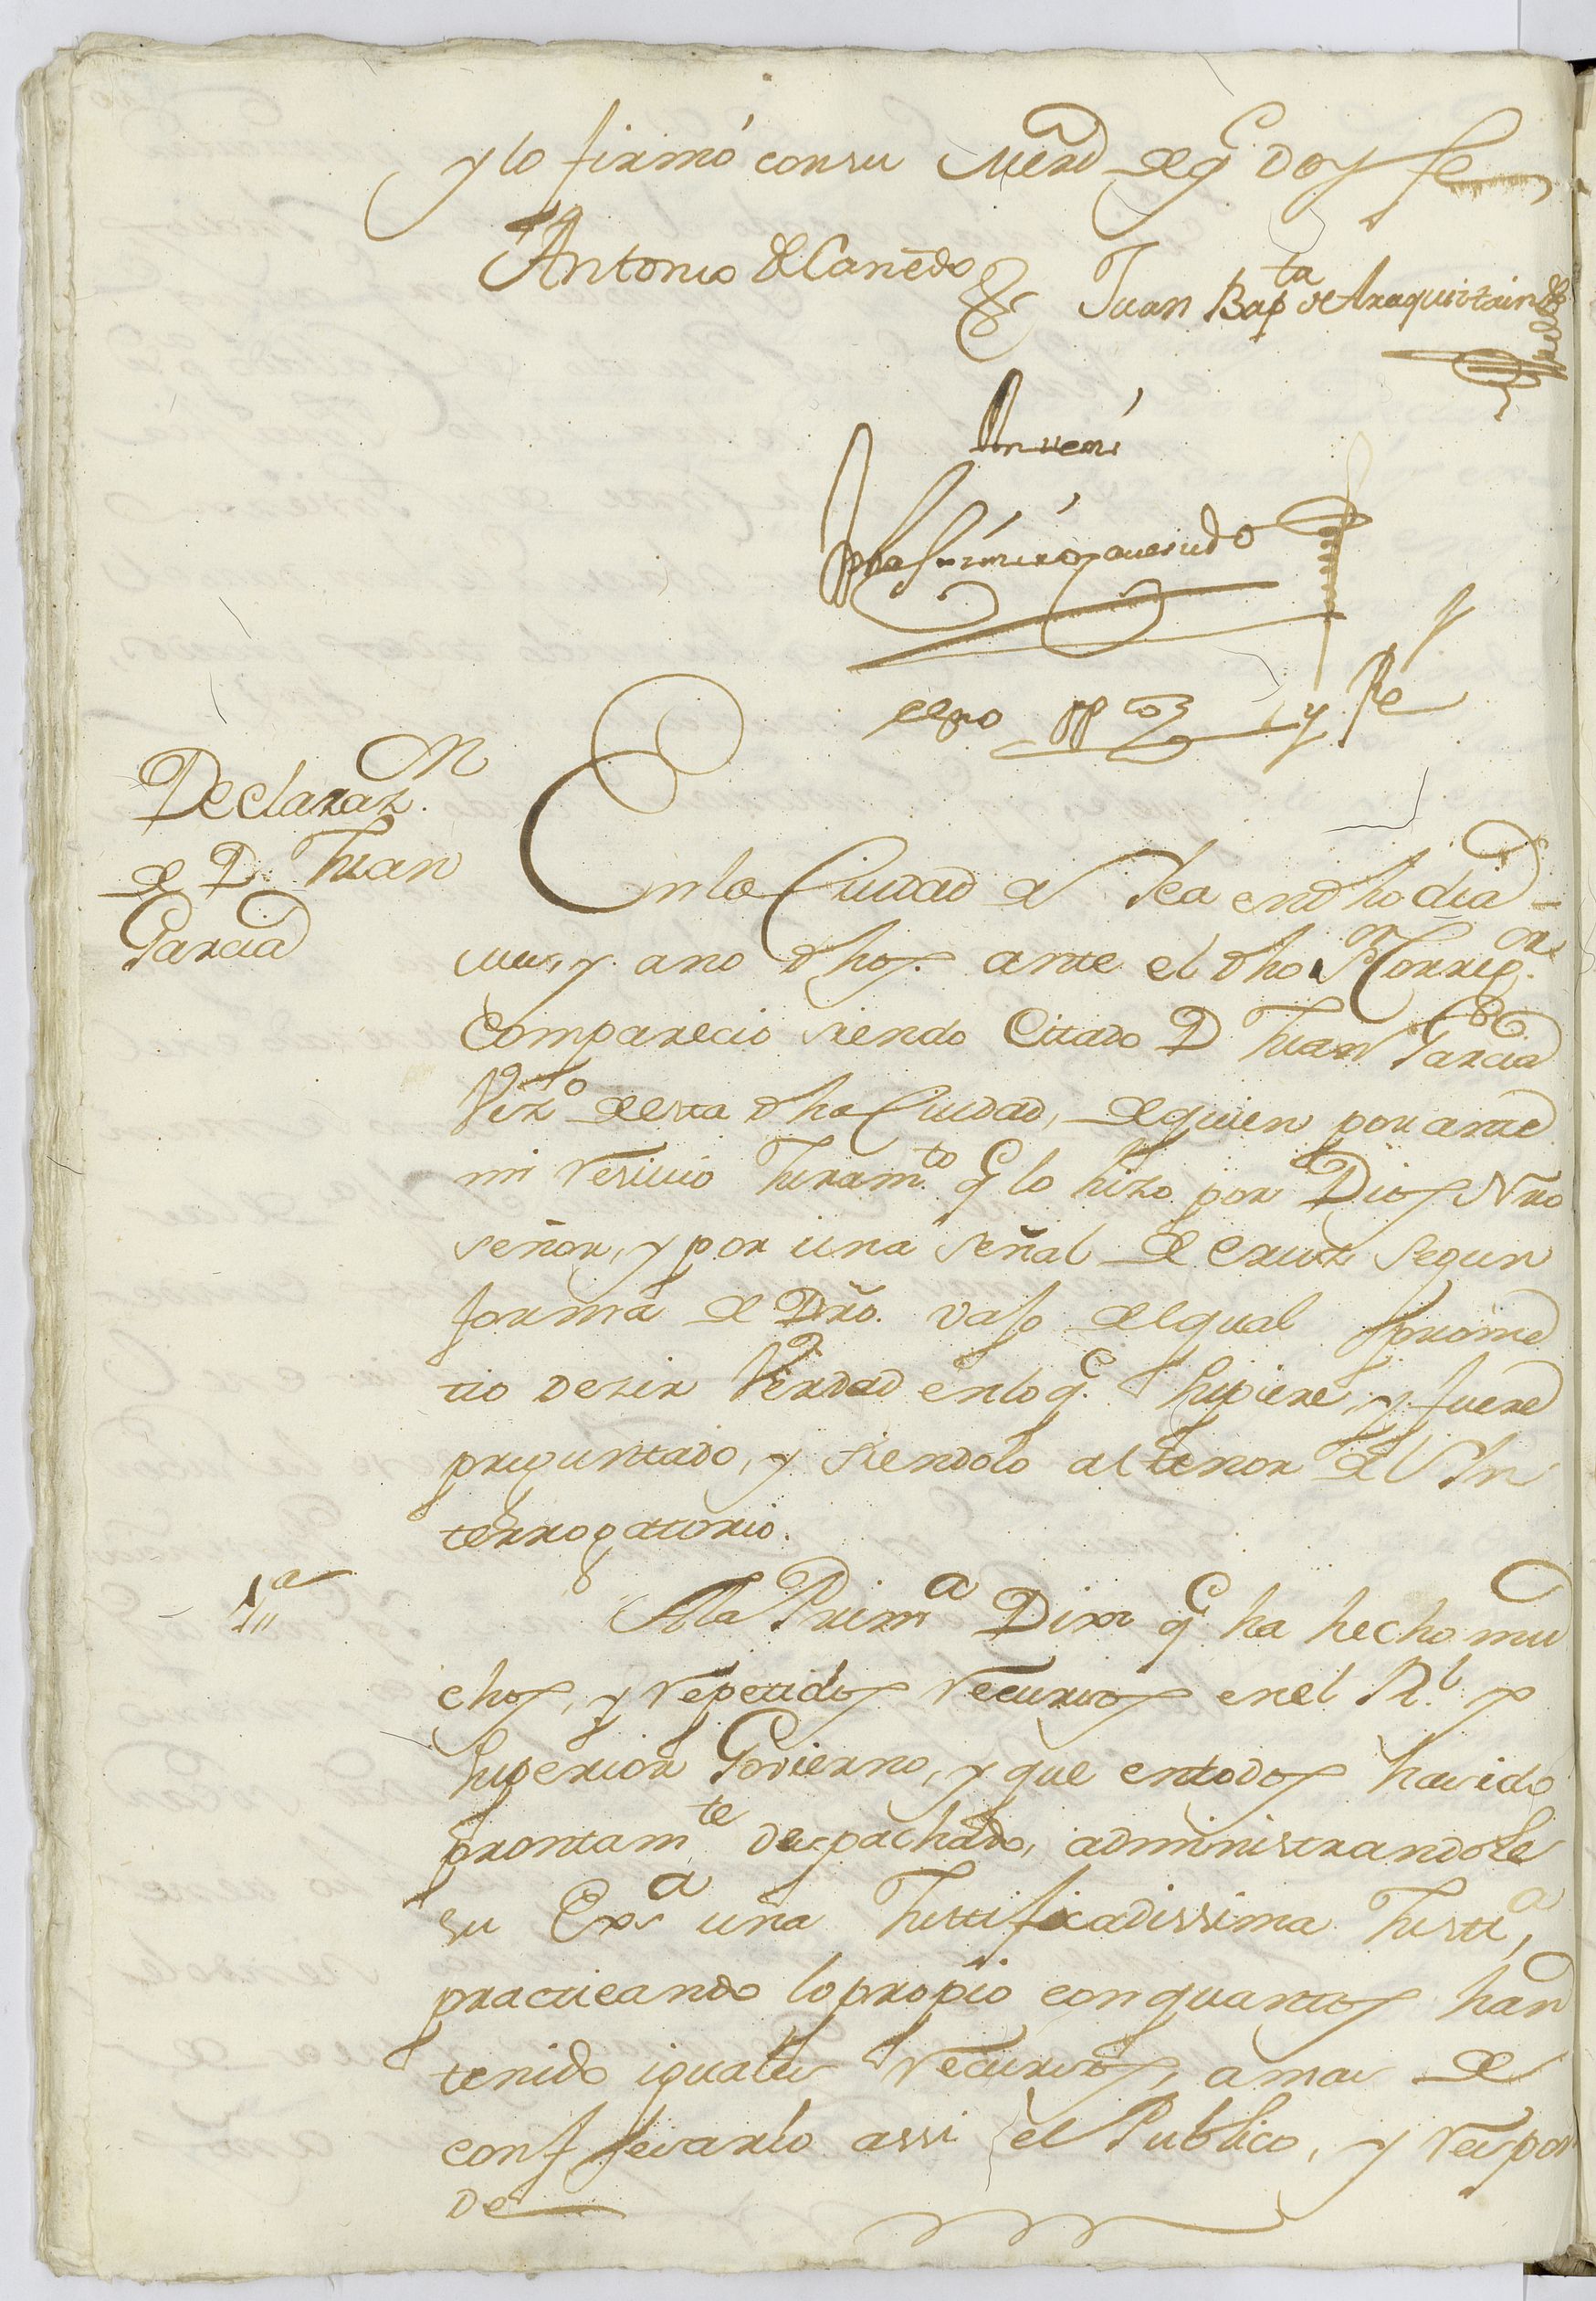 y lo firmó con su Merd de q^e doy fe
Antonio de Canedo
Juan Bap^ta de Araquistain
Antemi
esno pp^co y Re^l
Declaraz^n
de D. Juan
Garcia
En la Ciudad de Ica en dho dia
mes, y año dhos. ante el dho S^r Correg^or
comparecio siendo Citado D Juan Garcia
Vez^o de esta dha Ciudad, de quien por ante
mi reciuio Juram^to q^e lo hizo por Dios Nro
señor, y por una señal de cruz segun
forma de Dro. vajo del qual prome
tio dezir Verdad en lo q^e supiere, y fuere
preguntado, y siendolo al tenor del In
terrogatorio.
1^a
A la Prim^a Dixo q^e ha hecho mu
chos, y repetidos recursos en el R^l y
Superior Govierno, y que en todos ha sido
prontam^te despachado, administrandole
su Ex^a una Justificadissima Justi^a,
practicando lo propio con quantos han
tenido iguales recursos, a mas de
confesarlo assi el Publico, y respon
de